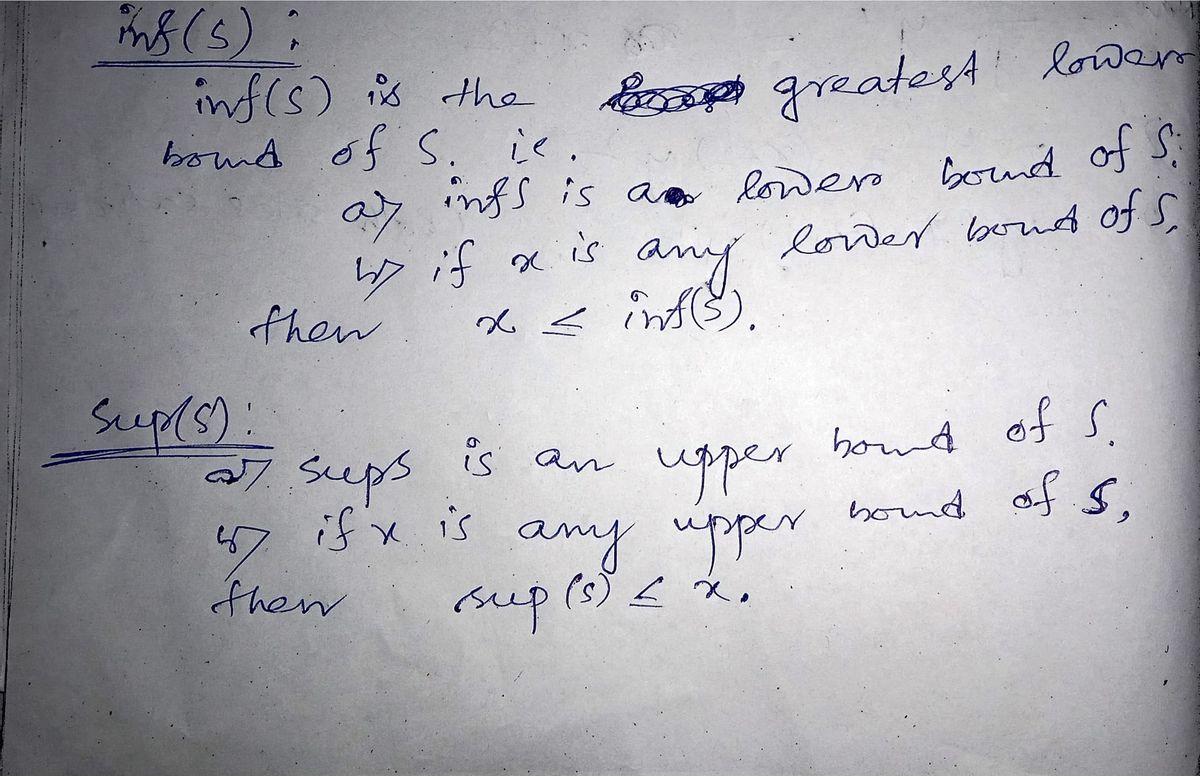 inf(S) :
inf(S) is the greatest lower
bound of S. ie.
a) inf S is a lower bound of S.
b) if x is any lower bound of S,
then x ≤ inf(S).
Sup(S) :
a) sup S is an upper bound of S.
b) if x is any upper bound of S,
then sup(S) ≤ x.